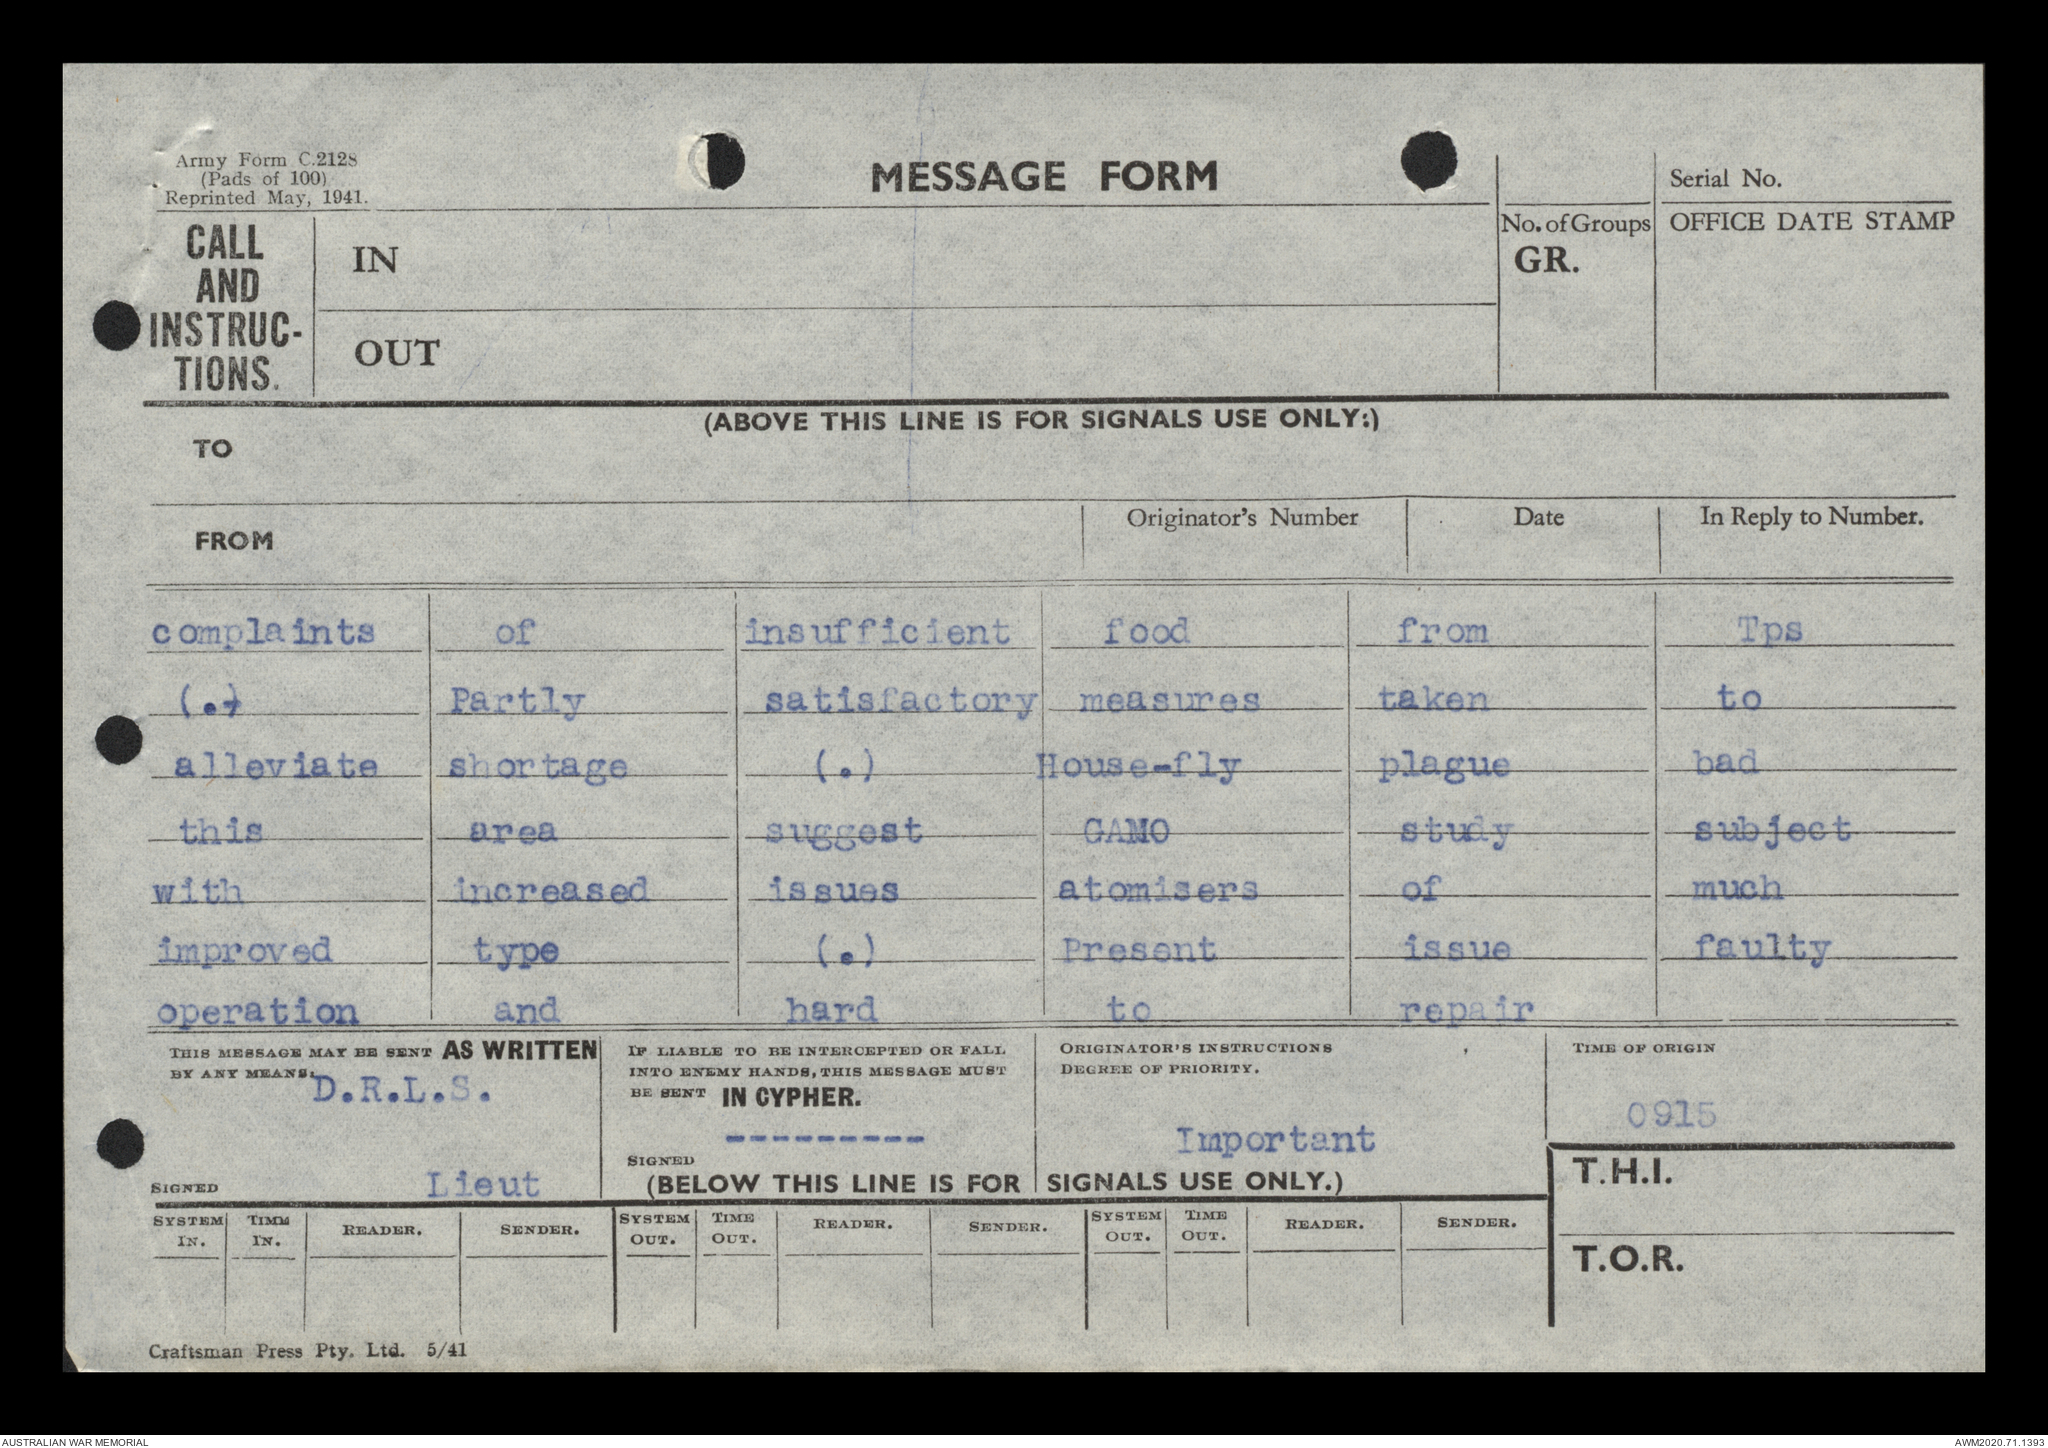 Army Form C.2128
(Pads of 100)
Reprinted May, 1941.
MESSAGE FORM
Serial No.
CALL AND INSTRUC- TIONS.
IN
No. of Groups
GR.
OFFICE DATE STAMP
OUT
(ABOVE THIS LINE IS FOR SIGNALS USE ONLY:)
TO
FROM
Originator's Number
Date
In Reply to Number.
complaints of insufficient food from Tps
(.) Partly satisfactory measures taken to
alleviate shortage (.) House-fly plague bad
this area suggest GAMO study subject
with increased issues atomisers of much
improved type (.) Present issue faulty
operation and hard to repair
THIS MESSAGE MAY BE SENT AS WRITTEN
BY ANY MEANS:
D.R.L.S.
SIGNED Lieut
IF LIABLE TO BE INTERCEPTED OR FALL
INTO ENEMY HANDS, THIS MESSAGE MUST
BE SENT IN CYPHER.
---------
SIGNED
ORIGINATOR'S INSTRUCTIONS
DEGREE OF PRIORITY.
Important
TIME OF ORIGIN
0915
(BELOW THIS LINE IS FOR SIGNALS USE ONLY.)
T.H.I.
SYSTEM IN. TIMM IN. READER. SENDER. SYSTEM OUT. TIME OUT. READER. SENDER. SYSTEM OUT. TIME OUT. READER. SENDER.
T.O.R.
Craftsman Press Pty. Ltd. 5/41
AUSTRALIAN WAR MEMORIAL
AWM2020.71.1393